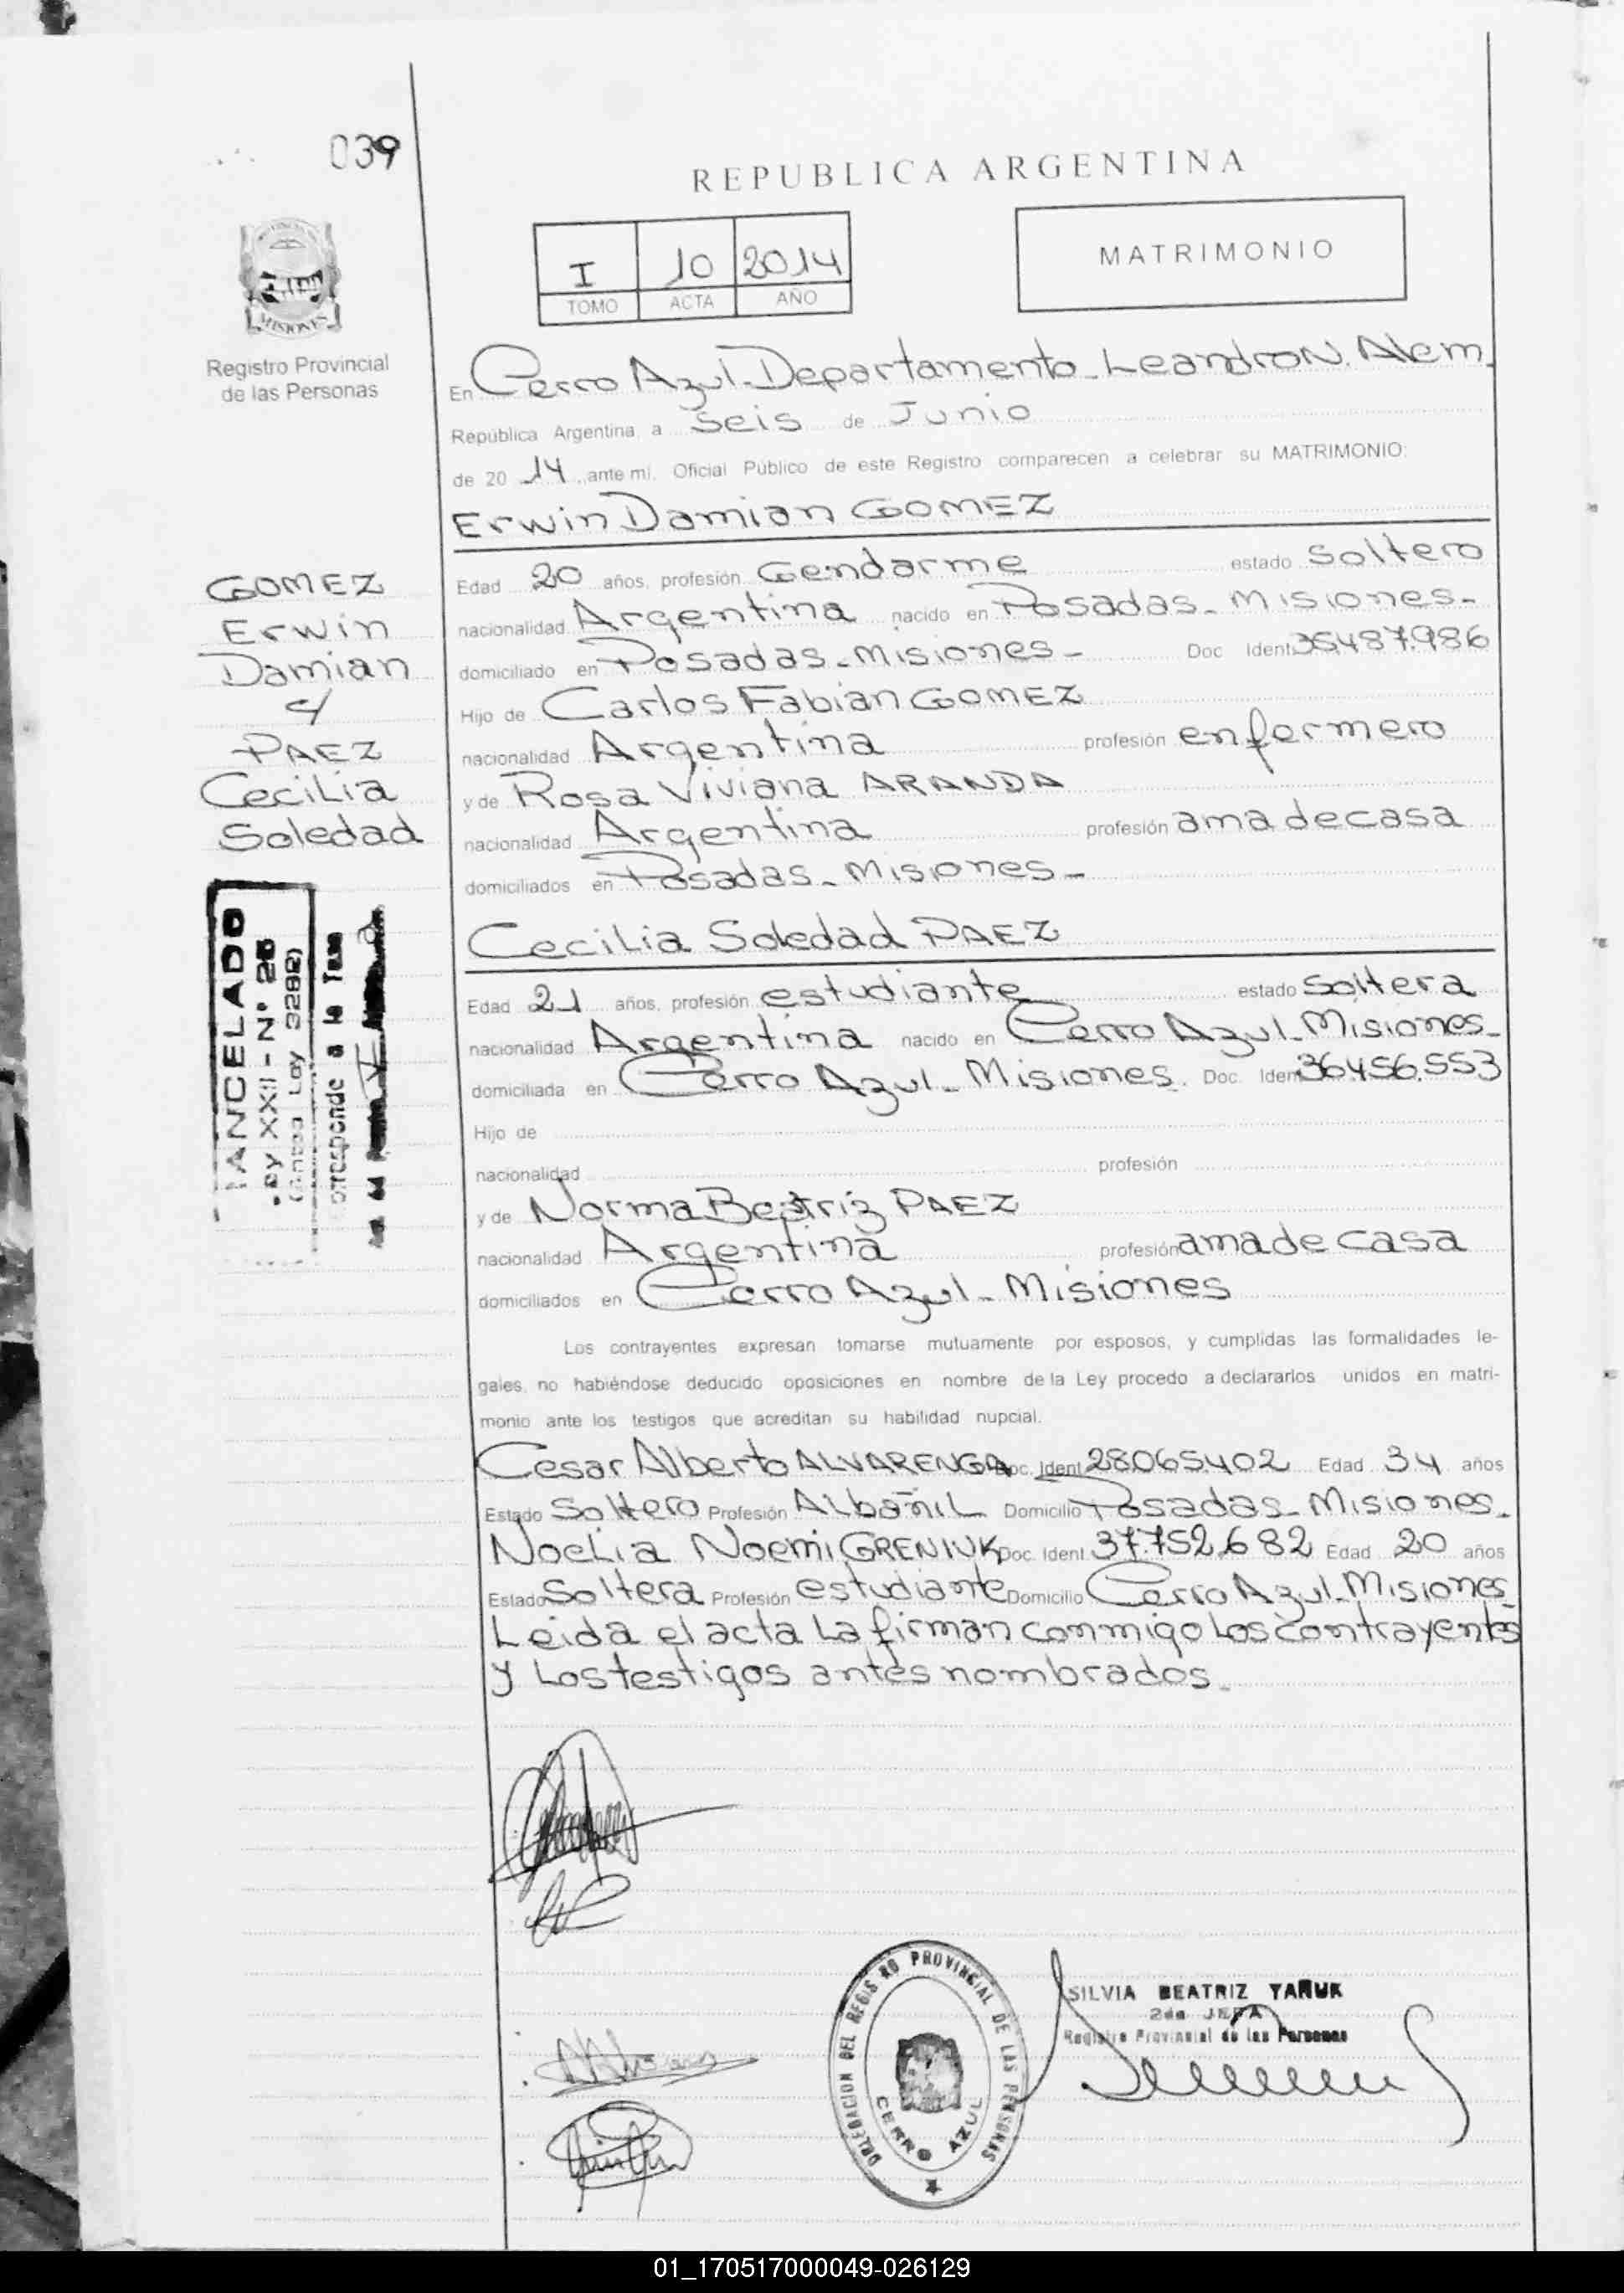 039
REPUBLICA ARGENTINA
I 10 2014
TOMO ACTA AÑO
MATRIMONIO
MISIONES
Registro Provincial
de las Personas
En Cerro Azul-Departamento-Leandro N. Alem.
República Argentina a Seis de Junio
de 20 14 ante mi, Oficial Público de este Registro comparecen a celebrar su MATRIMONIO:
Erwin Damian GOMEZ
Edad 20 años, profesión Gendarme estado Soltero
nacionalidad Argentina nacido en Posadas-Misiones-
domiciliado en Posadas-Misiones- Doc Ident. 35.487.986
Hijo de Carlos Fabian GOMEZ
nacionalidad Argentina profesión enfermero
y de Rosa Viviana ARANDA
nacionalidad Argentina profesión ama de casa
domiciliados en Posadas-Misiones-
GOMEZ
Erwin
Damian
c/
PAEZ
Cecilia
Soledad
Cecilia Soledad PAEZ
Edad 21 años, profesión estudiante estado Soltera
nacionalidad Argentina nacido en Cerro Azul-Misiones-
domiciliada en Cerro Azul-Misiones. Doc. Ident. 36.456.553
Hijo de
nacionalidad profesión
y de Norma Beatriz PAEZ
nacionalidad Argentina profesión ama de casa
domiciliados en Cerro Azul-Misiones
ANCELADO
ey XXII - N° 25
(Antes Ley 3262)
orresponde a la Tasa
Los contrayentes expresan tomarse mutuamente por esposos, y cumplidas las formalidades le-
gales, no habiéndose deducido oposiciones en nombre de la Ley procedo a declararlos unidos en matri-
monio ante los testigos que acreditan su habilidad nupcial.
Cesar Alberto ALVARENGA Doc. Ident 28.065.402 Edad 34 años
Estado Soltero Profesión Albañil Domicilio Posadas-Misiones.
Noelia Noemi GRENIUK Doc. Ident. 37.752.682 Edad 20 años
Estado Soltera Profesión estudiante Domicilio Cerro Azul-Misiones
Leida el acta la firman conmigo los contrayentes
y los testigos antes nombrados.
DELEGACION DEL REGISTRO PROVINCIAL DE LAS PERSONAS
CERRO AZUL
SILVIA BEATRIZ YAÑUK
2da JEFA
Registro Provincial de las Personas
01_170517000049-026129